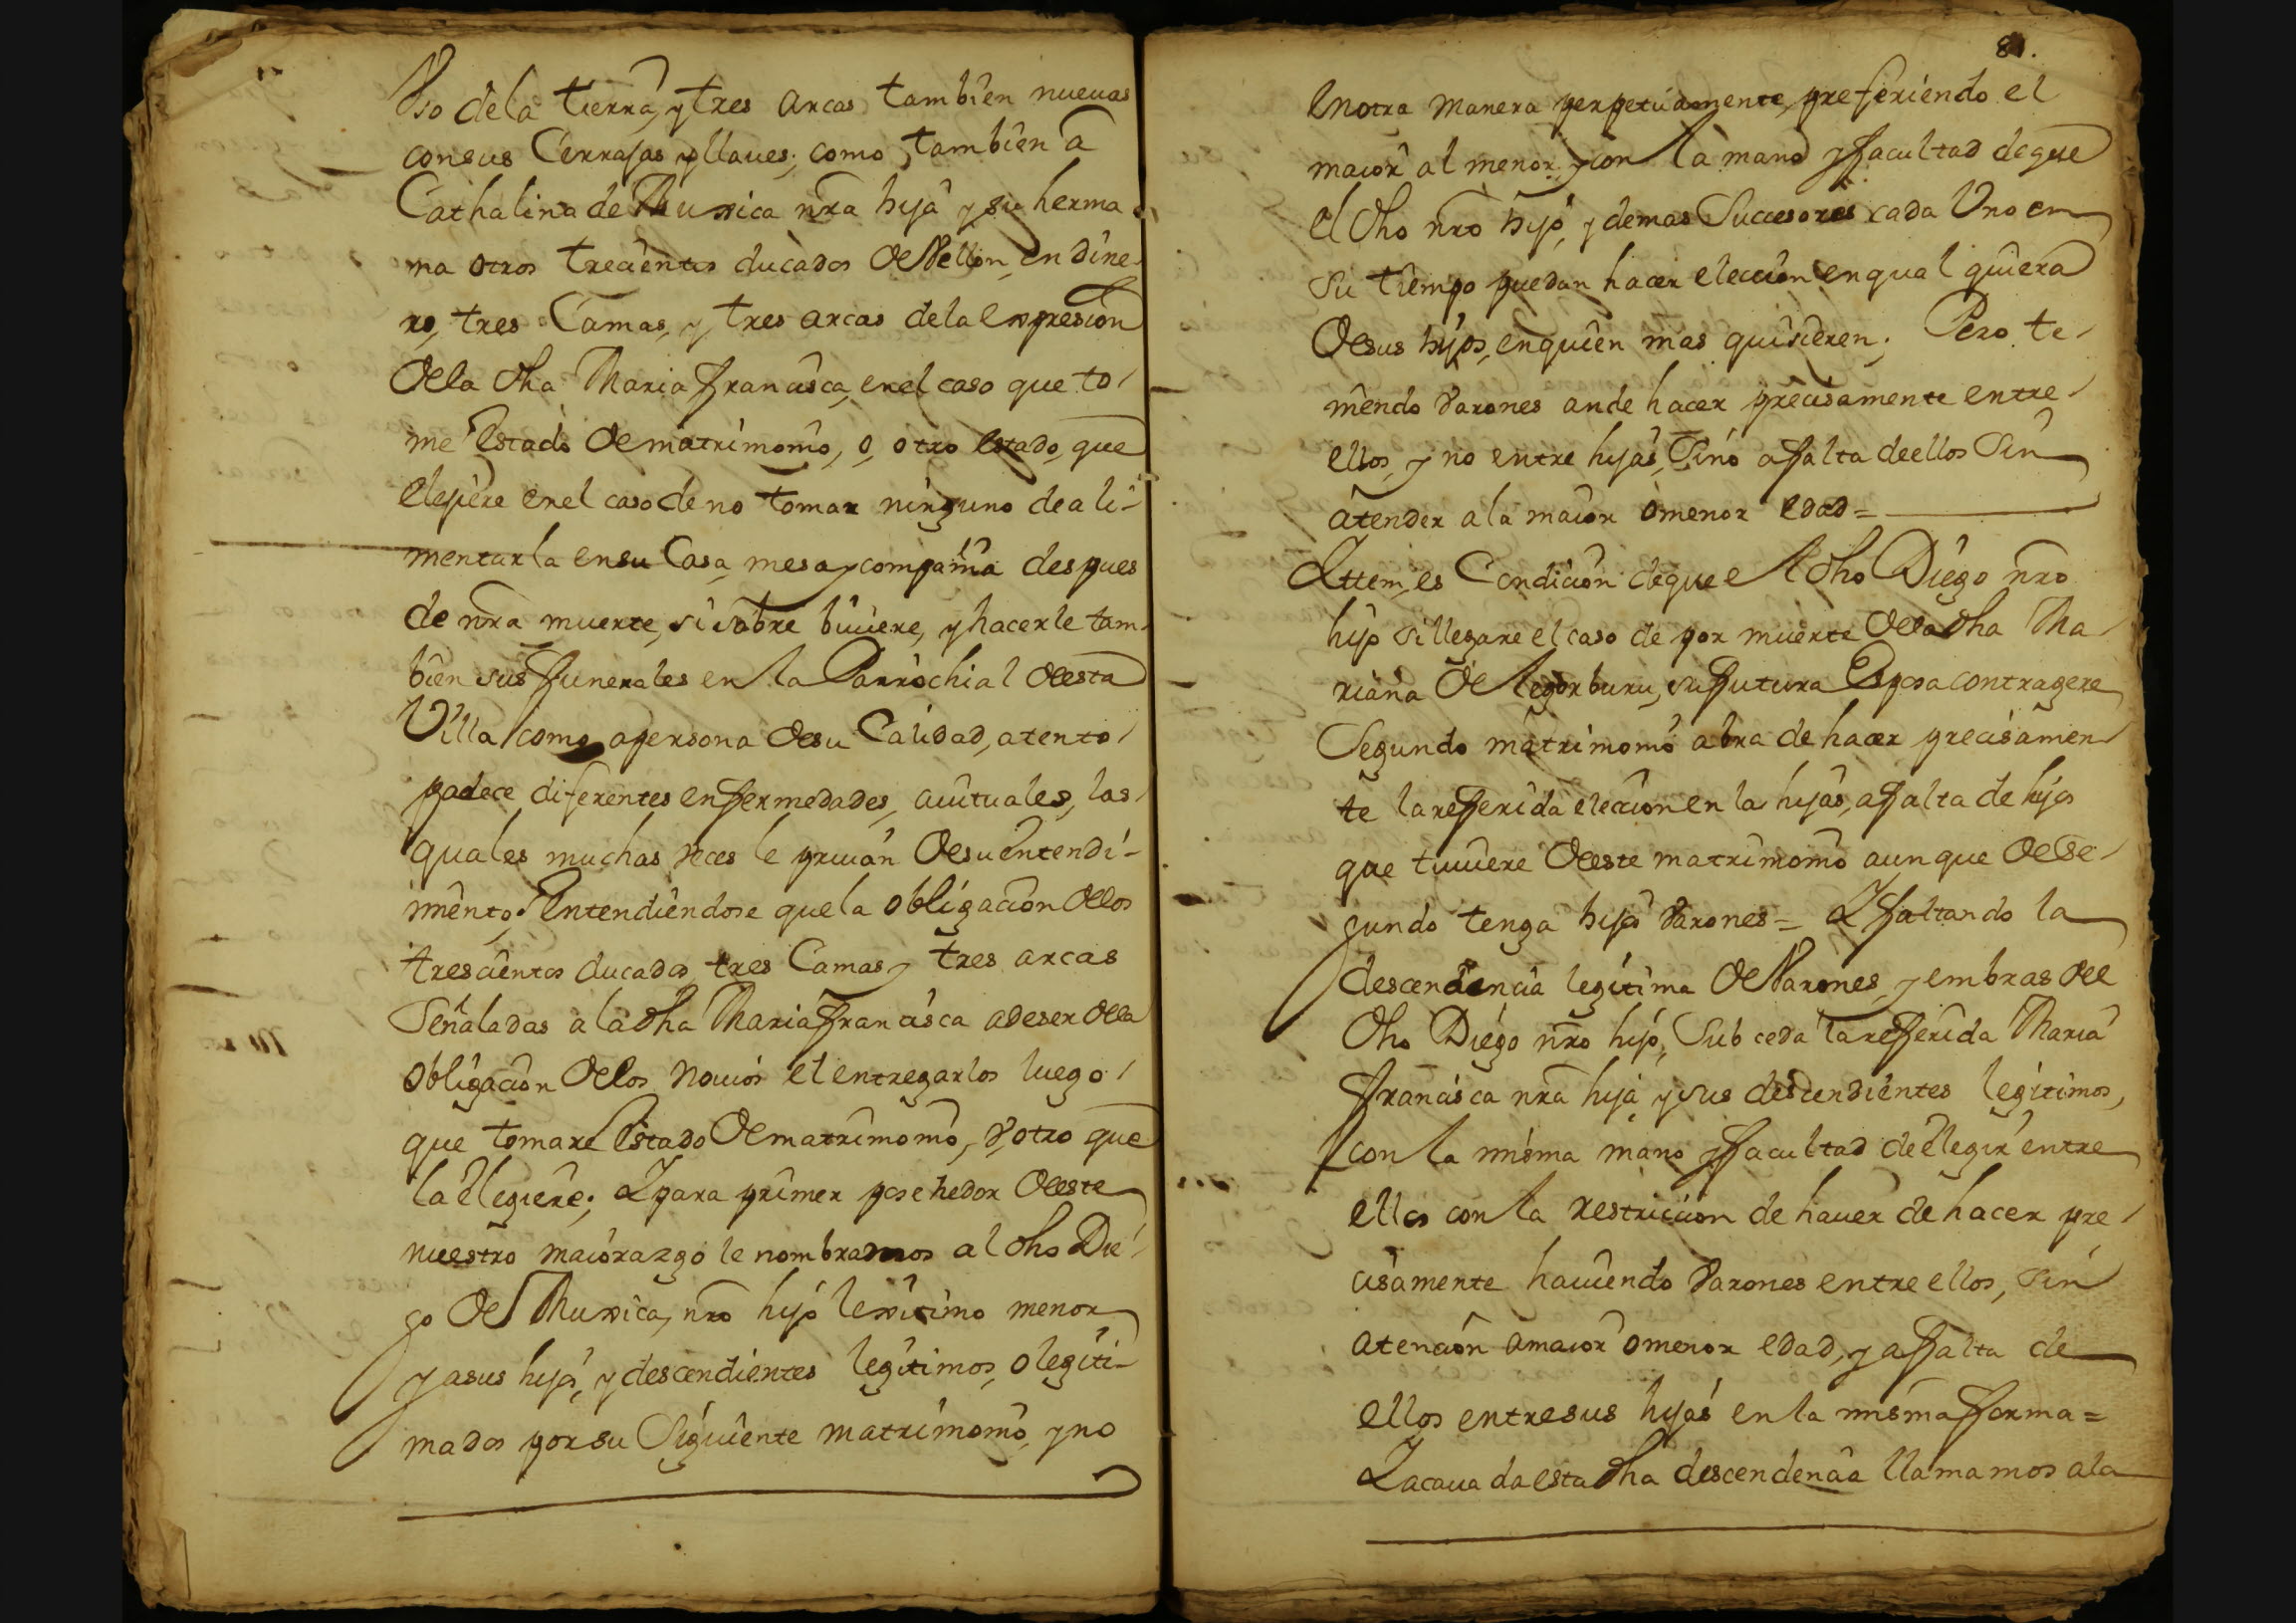 Vso dela tierra, y tres arcas tambien nueuas
consus Cerrajas y llaues; como tambien a
Cathalina de Muxica nra hija y su herma
na otros trecientos ducados de Vellon en dine-
ro, tres Camas, y tres arcas dela expresion
dela dha Maria francisca, enel caso que to-
me estado de matrimonio, o, otro estado, que
elejiere enel caso de no tomar ninguno de ali-
mentarla ensu Casa, mesa y compañia despues
de nra muerte, si sobre biuiere, y hacerle tam-
bien sus funerales en la Parrochial desta
Villa como apersona desu Calidad, atento
padece diferentes enfermedades, auituales, las
quales muchas veces le priuan desu entendi-
miento. Entendiendose que la obligacion de los
trescientos ducados tres Camas y tres arcas
Señaladas a la dha Maria francisca a deser dela
obligacion de los nouios el entregarlos luego
que tomare estado de matrimonio, v, otro que
la elegiere; Y para primer posehedor deeste
nuestro maiorazgo le nombramos al dho Die-
go de Muxica, nro hijo lexitimo menor
y asus hijos, y descendientes legitimos, o legiti-
mados por su Siguiente matrimonio, y no
81.
enotra manera perpetuamente, prefiriendo el
maior al menor, y con la mano y facultad de que
el dho nro hijo, y demas Succesores cada Uno en
su tiempo puedan hacer eleccion en qual quiera
desus hijos, enquien mas quisieren; Pero te-
niendo varones ande hacer precisamente entre
ellos, y no entre hijas, Sino afalta deellos Sin
atender ala maior omenor edad=
Yttem, es Condicion deque el dho Diego nro
hijo si llegare el caso de por muerte dela dha Ma
riana de legorburu, su futura Esposa contragere
Segundo matrimonio abra de hacer precisamen
te la referida eleccion en las hijas, afalta de hijos
que tuuiere deeste matrimonio aunque de Se-
gundo tenga hijos varones= Y faltando la
descendencia legitima de Varones, y embras del
dho Diego nro hijo, Subceda la referida Maria
francisca nra hija y sus descendientes legitimos,
con la misma mano y facultad de elegir entre
ellos con la restriccion de hauer de hacer pre
cisamente hauiendo varones entre ellos, Sin
atencion amaior omenor edad, y afalta de
ellos entresus hijas en la misma forma=
Yacaua da esta dha descendencia llamamos ala